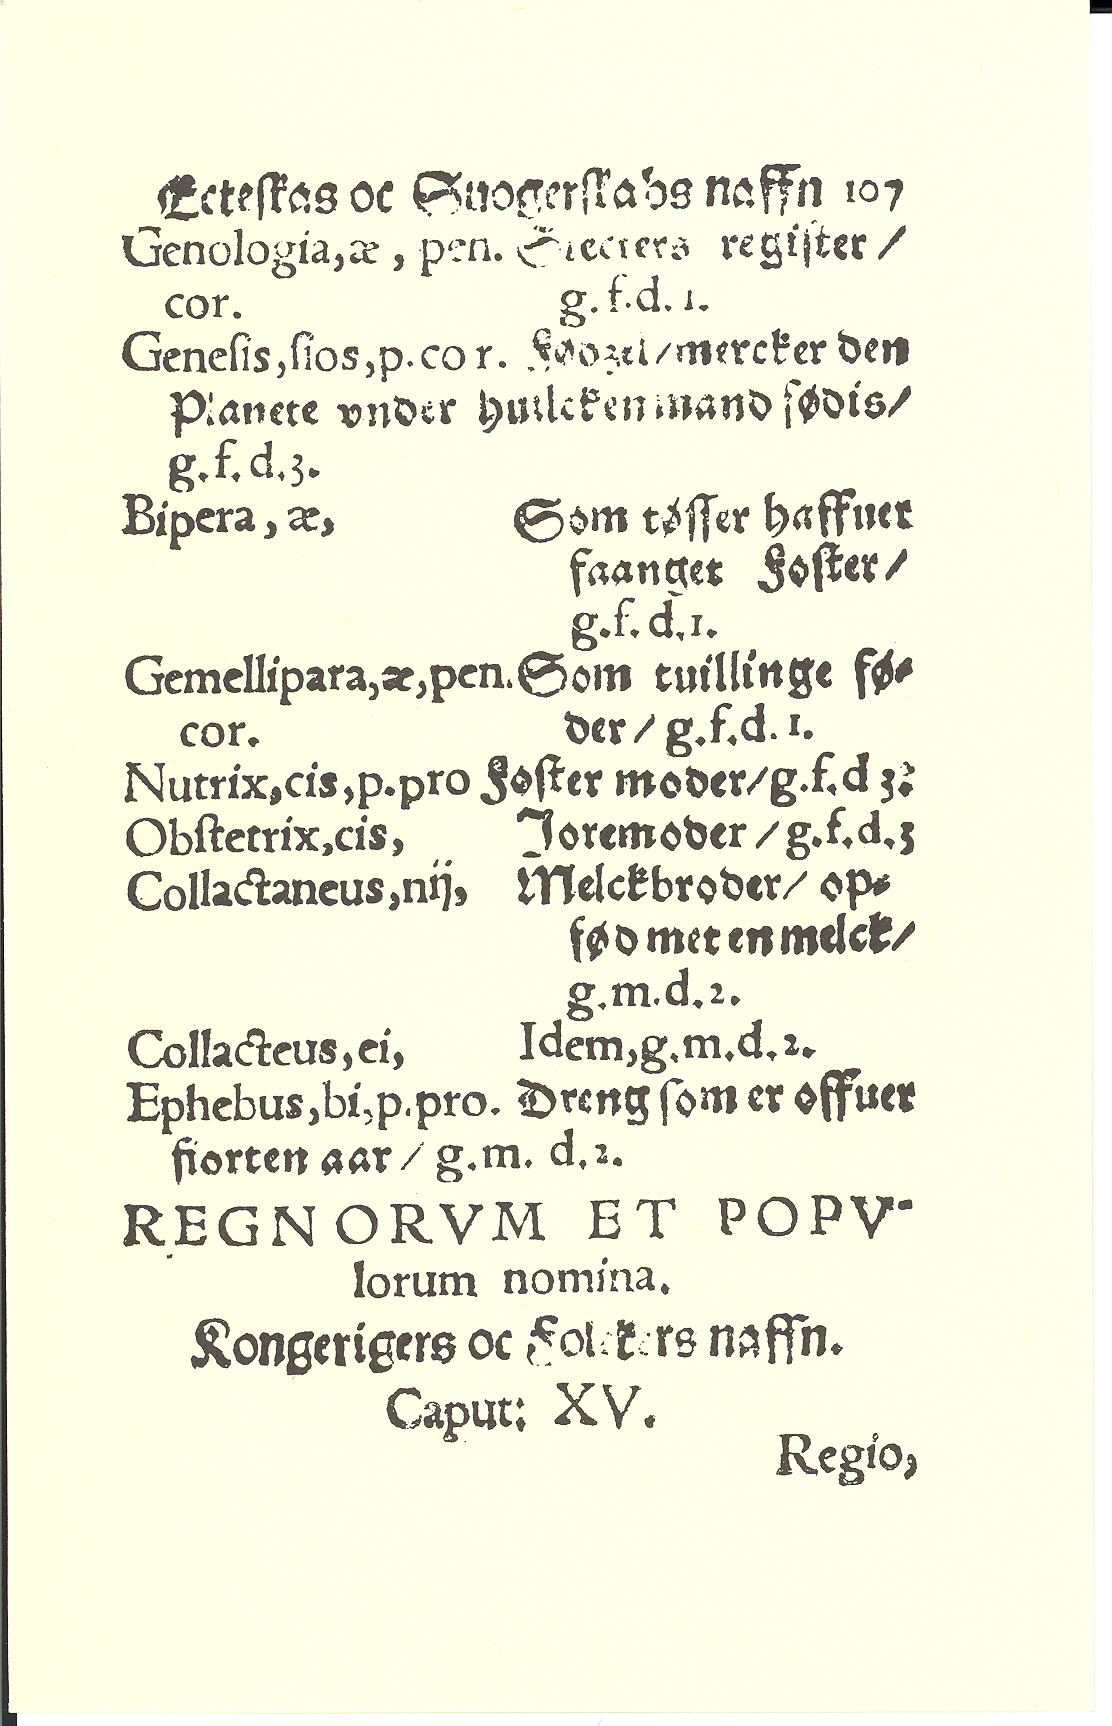 Ecteſkas oc Suogerſkabs naffn 107
Genologia,æ, pen. Slecters regiſter /
cor. g. f.d. 1.
Geneſis,ſios,p.cor. mercker den
Planete vnder huilcken mand fødis/
g.f.d.3.
Bipera, æ, Som tøſſer haffuer
faanget Foſter /
g.f.d.1.
Gemellipara,æ,pen. Som tuillinge fø⸗
cor. der / g.f.d.1.
Nutrix,cis,p.pro Foſter moder/g.f.d 3:
Obſtetrix,cis, Joremoder / g.f.d.3
Collactaneus,nij, Melckbroder/ op⸗
fød met en melck/
g.m.d.2.
Collacteus,ei, Idem,g.m.d.2.
Ephebus,bi,p.pro. Dreng ſom er offuer
fiorten aar / g.m. d.2.
REGNORVM ET POPV-
lorum nomina.
Kongerigers oc Folckers naffn.
Caput: XV.
Regio,